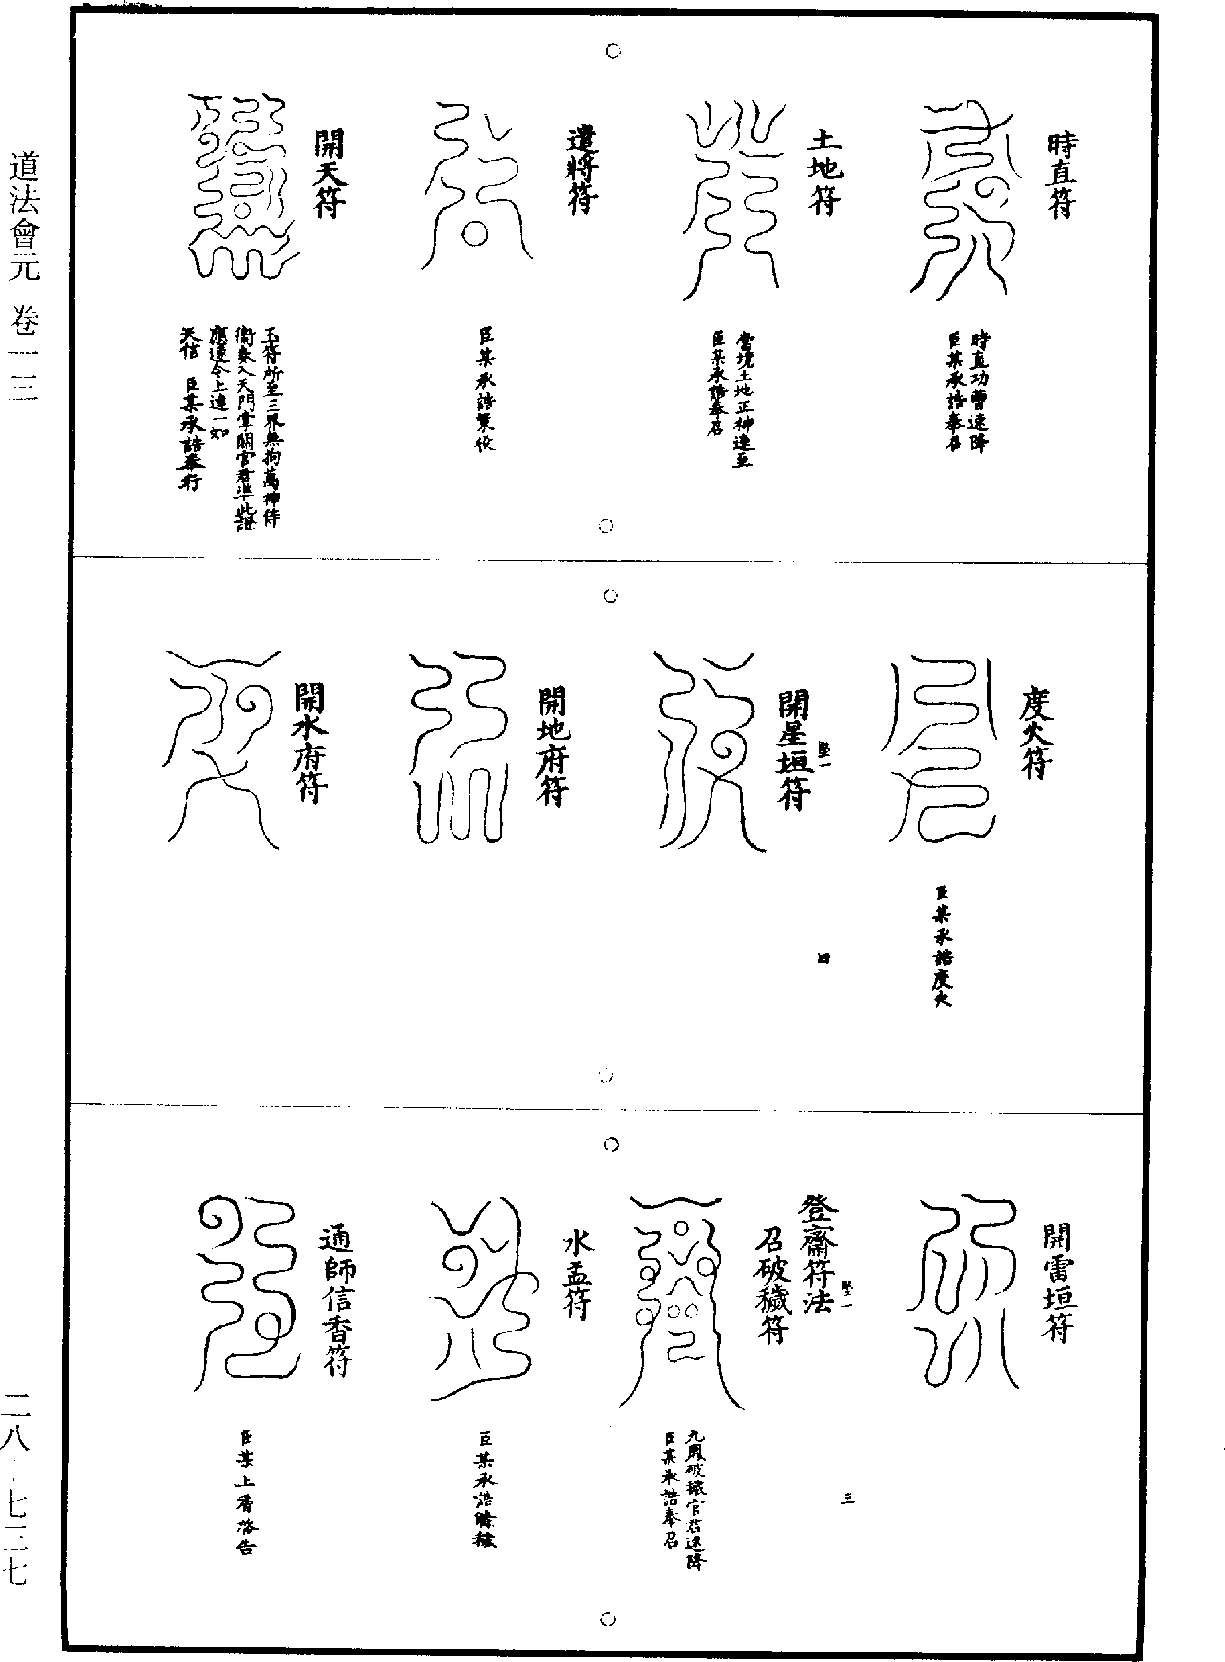 道法會元 卷一三
二八·七三七
時直符
時直功曹速降
臣某承誥奉召
土地符
當境土地正神速至
臣某承誥奉召
遣將符
臣某承誥策役
開天符
玉符所至三界無拘萬神侍
衛奏入天門掌關官君準此誥
應速令上達一如
天信 臣某承誥奉行
度火符
臣某承誥度火
開星垣符
四
開地府符
開水府符
開雷垣符
登齋符法
三
召破穢符
九鳳破穢官君速降
臣某承誥奉召
水盂符
臣某承誥蕩穢
通師信香符
臣某上香啓告